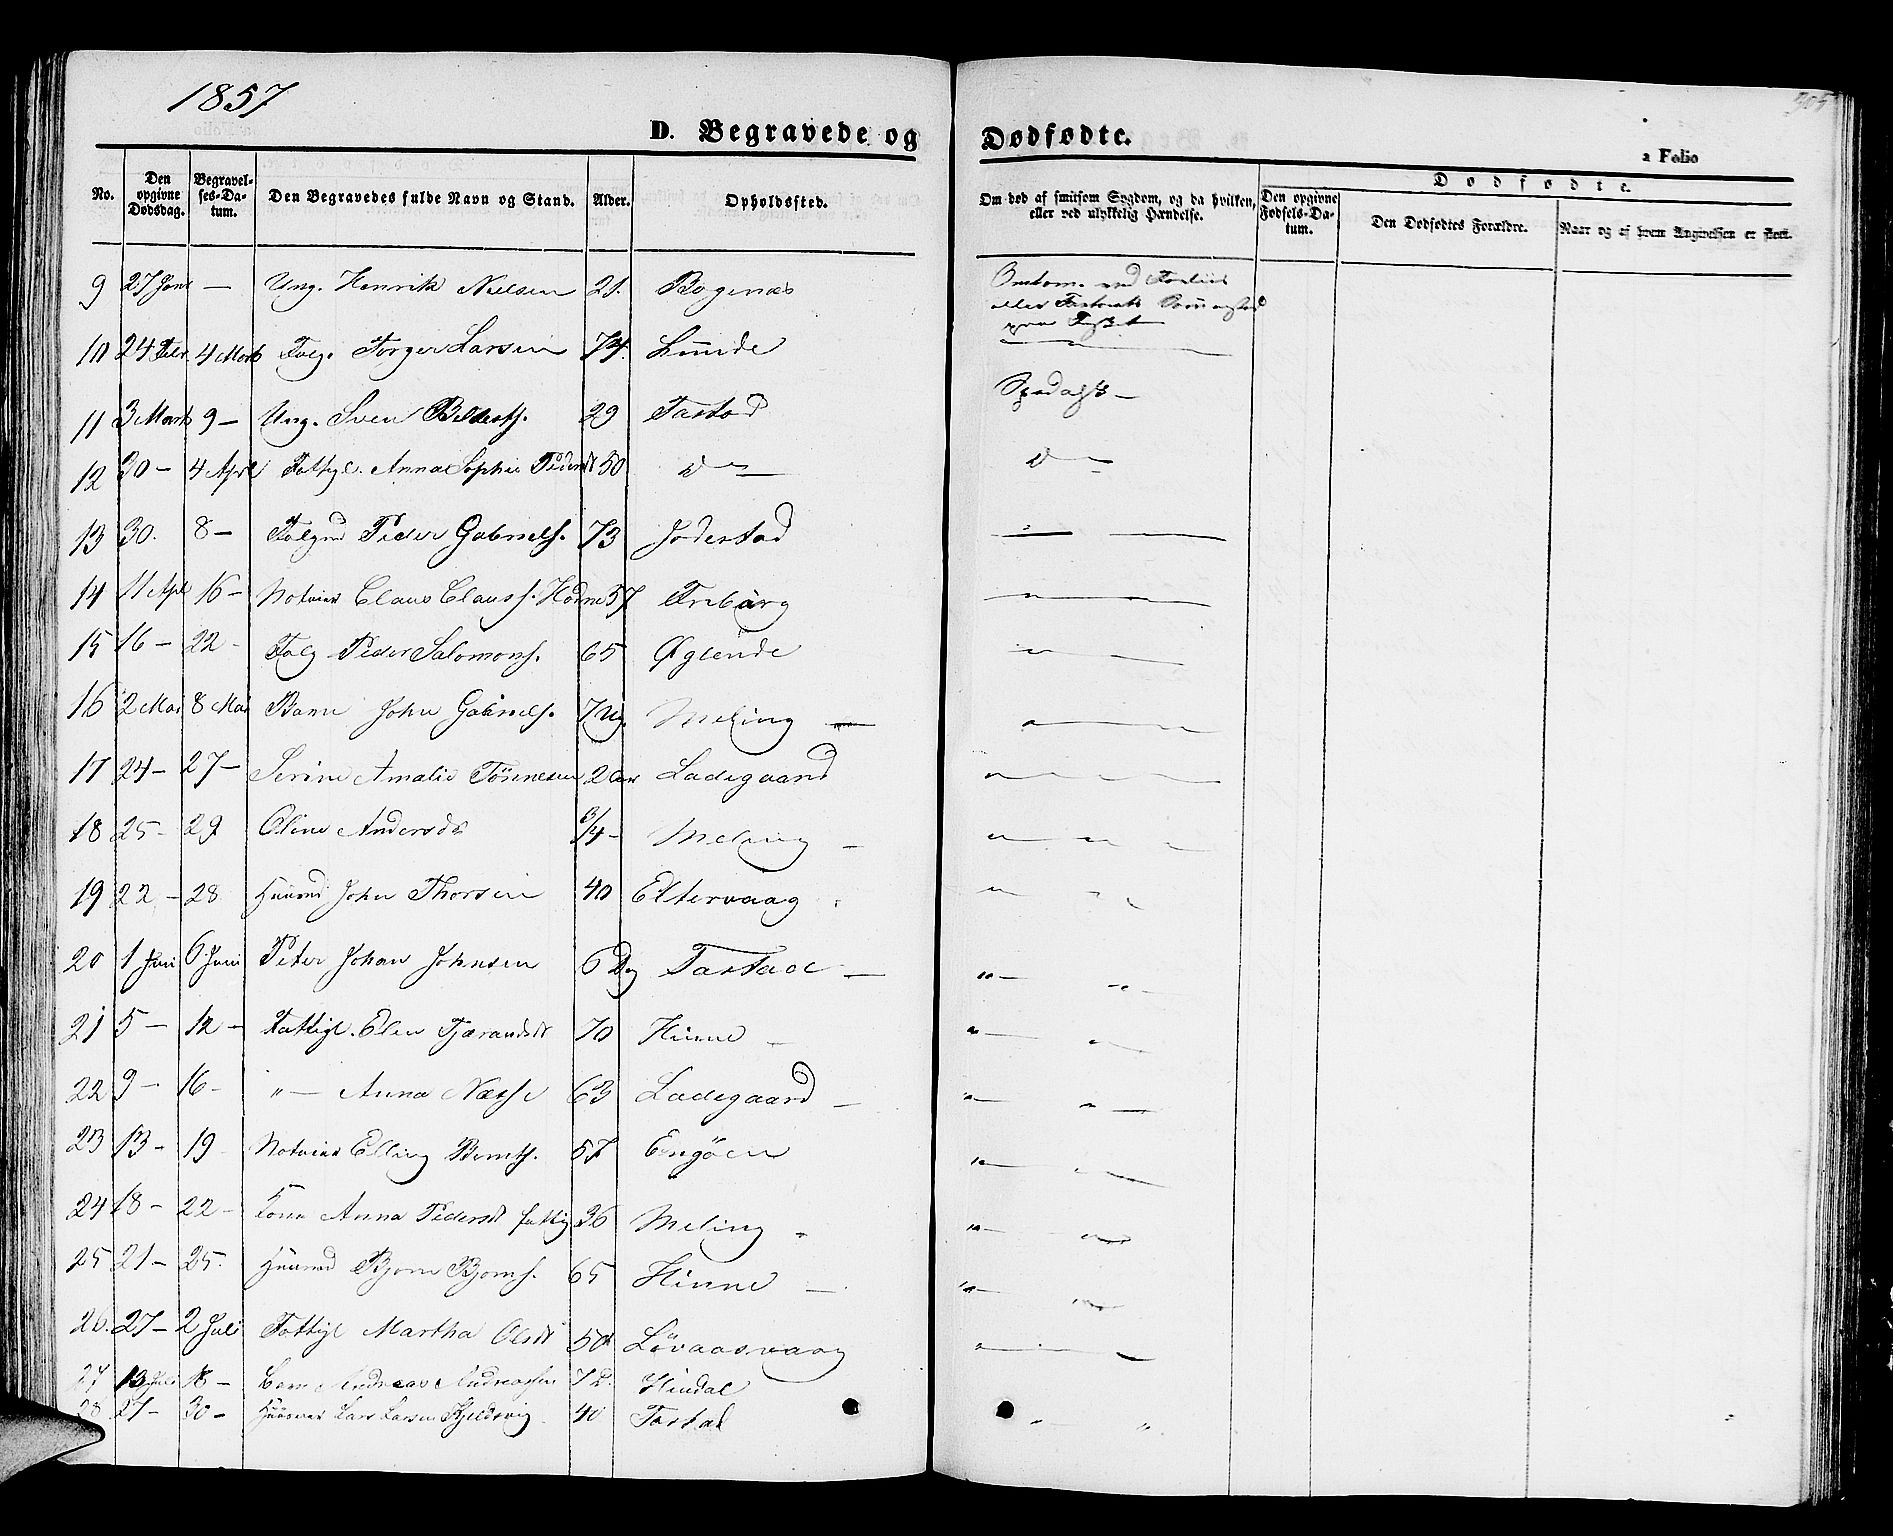 1857
305
D. Begravede og Dødfødte.
2 Folio
No. | Den opgivne Dødsdag. | Begravelses-Datum. | Den Begravedes fulde Navn og Stand. | Alder. | Opholdssted. | Om død af smitsom Sygdom, og da hvilken, eller ved ulykkelig Hændelse. | Dødfødte. | Den opgivne Fødsels-Datum. | Den Dødfødtes Forældre. | Naar og af hvem Angivelsen er skeet.
9 27 Janr — Ung. Henrik Nielsen 21. Bogenæs Omkom. ved Forliis
10 24 Febr 4 Marts Folg. Torger Larsen 74. Lunde — —
11 3 Marts 9 — Ung. Sven 29 Tastad Spedalsk —
12 30 — 4 April Fattigl. Anna Sophie Pedersdt 50 D — D —
13 30. 8 — Folgmd Peder Gabriels. 73 Jødestad — —
14 11 Apl 16 — Notvinds Claus Clauss. 57 — —
15 16 — 22 - Folg Peder Salomons. 65 Øglende — —
16 2 Mai 8 Mai Barn John Gabriels. 7 Ug. Meling — — —
17 24 — 27 — Serine Amalie Tönnesen 2 Aar Ladegaard — —
18 25 - 29 Oline Andersdt 3/4 - Meling — — —
19 22 — 28 Huusmd John Thorsen 40 Eltervaag
20 1 Juni 6 Juni Peter Johan Johnsen 6 Dg Tastad — " — "
21 5 — 12 — Fattigl. Elen Tjerandsdt 70 Hinne — " — "
22 9 — 16 - " — Anna 63 Ladegaard — " — "
23 13 - 19 Elling Bernts. 57 Engöen " — "
24 18 — 22 - Kone Anna Pedersdt fattig 36 Meling " — "
25 21 — 25. Huusmd Bjorn Bjorns. 65 Hinne — " — "
26. 27 — 2 Juli Fattigl Martha Olsdt 50 Lövaasvaag — —
27 13 Juli 18 — Barn Andreas Andreassen 7 D. Hindal
28 27 - 30 - Lars Larsen Kjeldsvig 40 Tastad " "